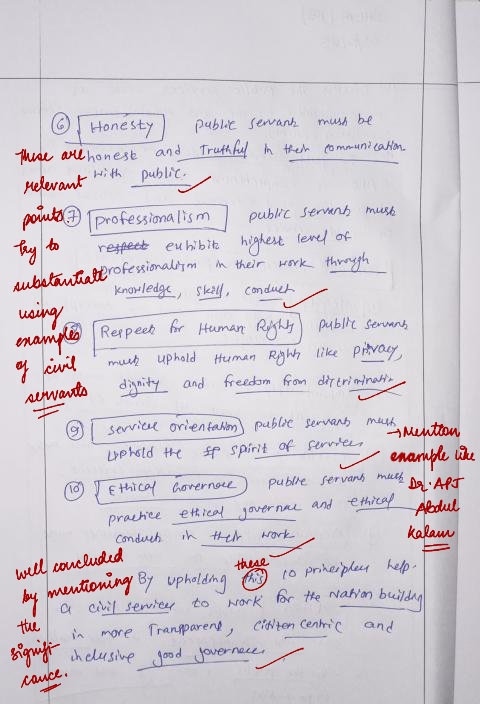 ⑥ Honesty public servants must be
honest and Truthful in their communication
with public.
These are
relevant
points.
Try to
substantiate
using
examples
of civil
servants
⑦ professionalism public servants must
respect exhibit highest level of
professionalism in their work through
knowledge, skill, conduct
Respect for Human Rights public servants
must uphold Human Rights like privacy,
dignity and freedom from discrimination
⑨ service orientation public servants must
uphold the spirit of services
→ Mention
example like
Dr. APJ
Abdul
Kalam
⑩ Ethical Governace public servants must
practice ethical governace and ethical
conduct in their work
well concluded
by mentioning
the
signifi-
cance.
these
By upholding this 10 principles help
a civil services to work for the Nation building
in more Transparent, citizen centric and
inclusive good governace